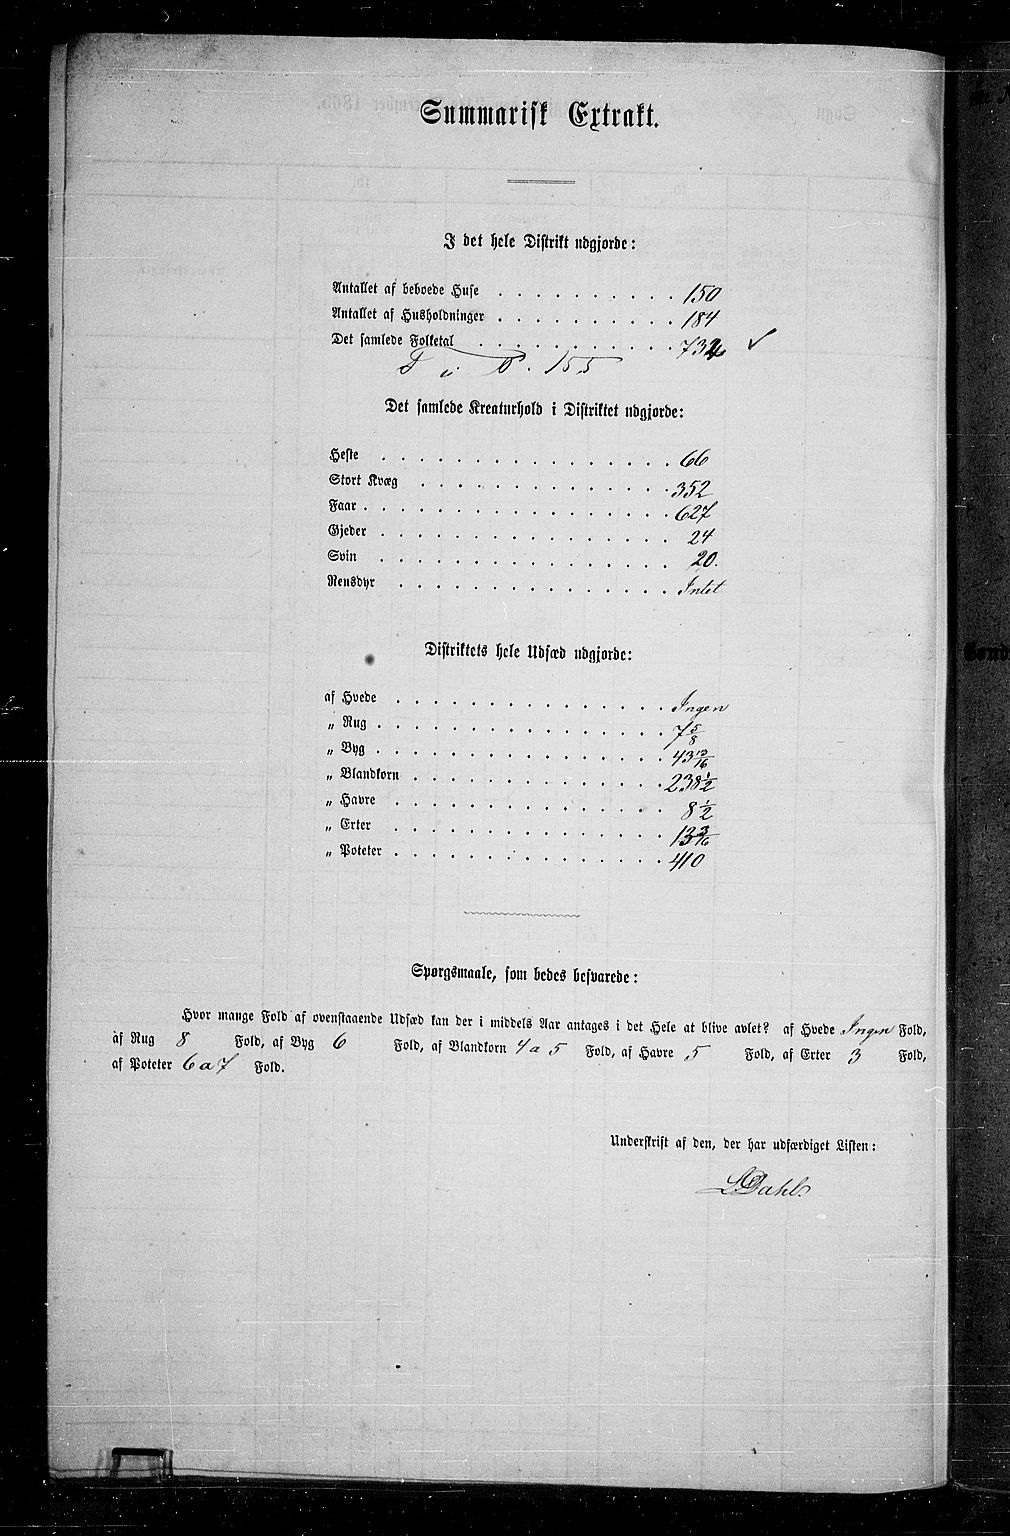 Summarisk Extrakt.
I det hele Distrikt udgjorde:
Antallet af beboede Huse . . . . . . . . . . 150
Antallet af Husholdninger . . . . . . . . . . 184
Det samlede Folketal . . . . . . . . . . . 734 ✓
T. i P. 155
Det samlede Kreaturhold i Distriktet udgjorde:
Heste . . . . . . . . . . . . . . . . 66
Stort Kvæg . . . . . . . . . . . . . . 352
Faar . . . . . . . . . . . . . . . . . 627
Gjeder . . . . . . . . . . . . . . . . 24
Svin . . . . . . . . . . . . . . . . 20.
Rensdyr . . . . . . . . . . . . . . . Intet
Distriktets hele Udsæd udgjorde:
af Hvede . . . . . . . . . . . . . . . Ingen
„ Rug . . . . . . . . . . . . . . . . 7 5/8
„ Byg . . . . . . . . . . . . . . . . 43 13/16
„ Blandkorn . . . . . . . . . . . . . . 238 1/2
„ Havre . . . . . . . . . . . . . . . 8 1/2
„ Erter . . . . . . . . . . . . . . . 13 3/16
„ Poteter . . . . . . . . . . . . . . . 410
Spørgsmaale, som bedes besvarede:
Hvor mange Fold af ovenstaaende Udsæd kan der i middels Aar antages i det Hele at blive avlet? af Hvede Ingen Fold,
af Rug 8 Fold, af Byg 6 Fold, af Blandkorn 4 a 5 Fold, af Havre 5 Fold, af Erter 3 Fold,
af Poteter 6 a 7 Fold.
Underskrift af den, der har udfærdiget Listen:
Dahl.